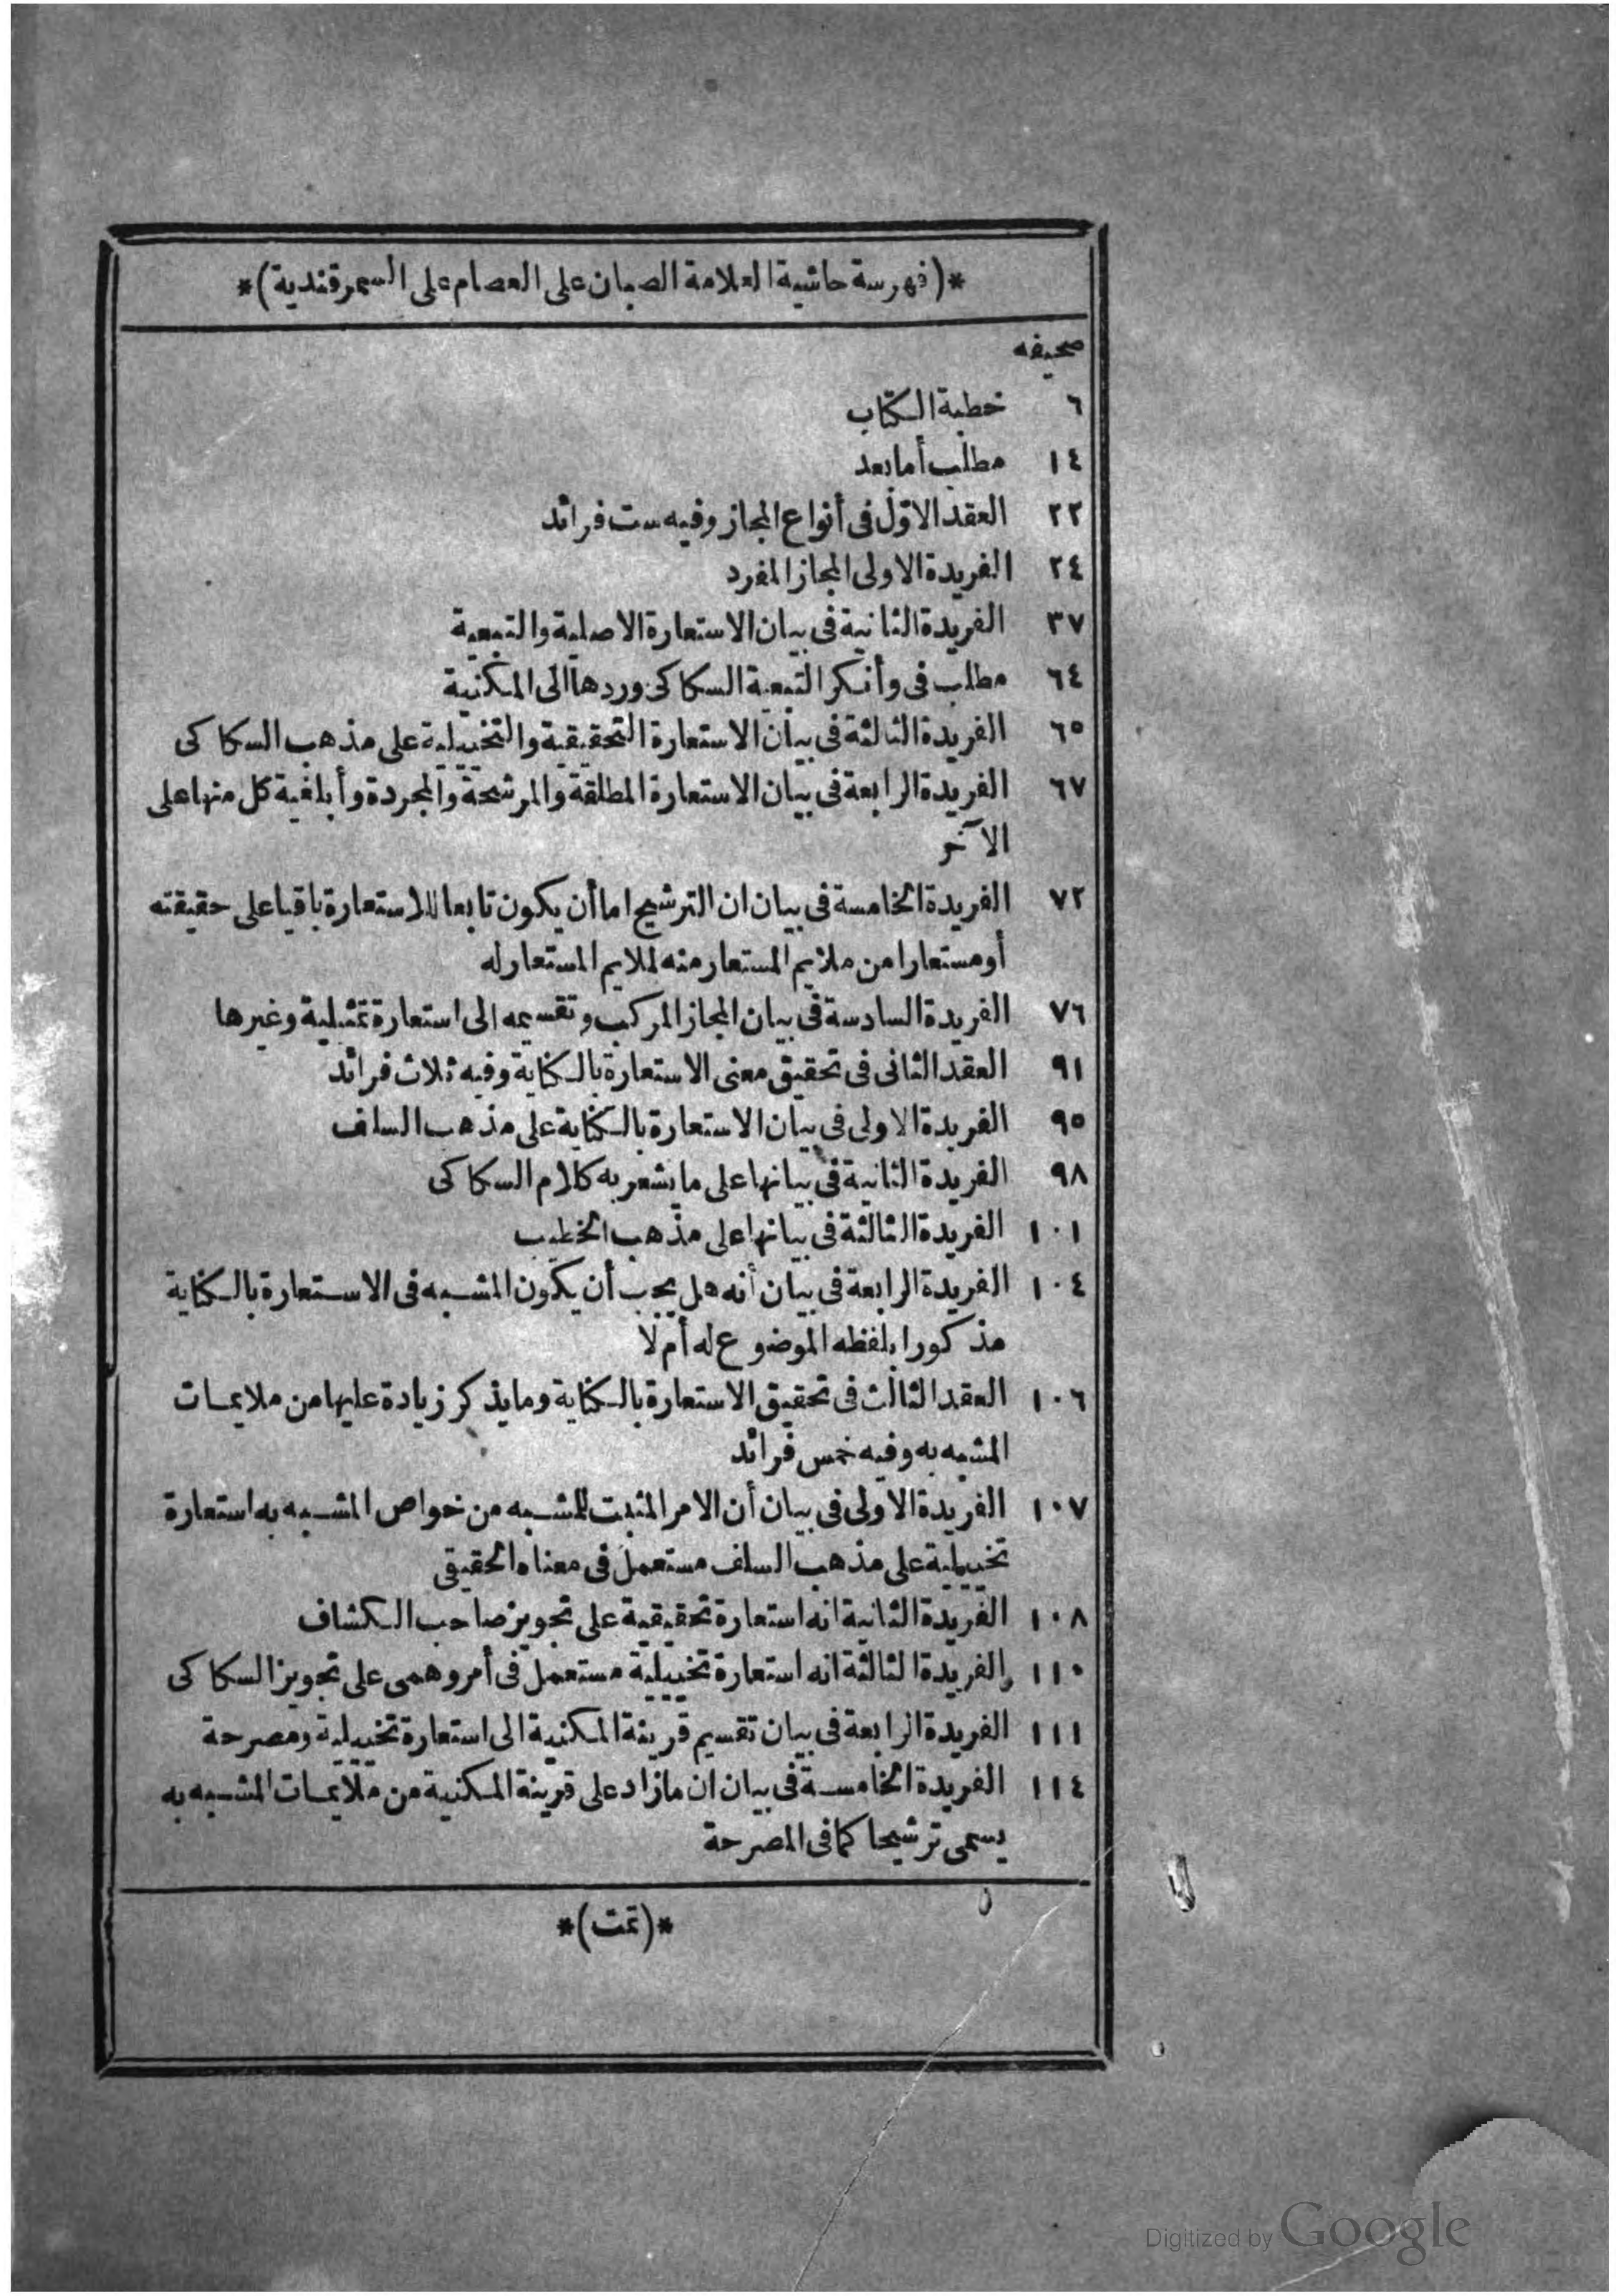 *(فهرسة حاشية العلامة الصبان على العصام على السمرقندية)*
صحيفه
٦ خطبة الكتاب
١٤ مطلب أما بعد
٢٢ العقد الاوّل فى أنواع المجاز وفيه ست فرائد
٢٤ الفريدة الاولى المجاز المفرد
٣٧ الفريدة الثانية فى بيان الاستعارة الاصلية والتبعية
٦٤ مطلب فى وأنكر التبعية السكاكى وردها الى المكنية
٦٥ الفريدة الثالثة فى بيان الاستعارة التحقيقية والتخييلية على مذهب السكاكى
٦٧ الفريدة الرابعة فى بيان الاستعارة المطلقة والمرشحة والمجردة وأبلغية كل منها على
الآخر
٧٢ الفريدة الخامسة فى بيان ان الترشيح اما أن يكون تابعا للاستعارة باقيا على حقيقته
أو مستعارا من ملايم المستعار منه لملايم المستعار له
٧٦ الفريدة السادسة فى بيان المجاز المركب وتقسيمه الى استعارة تمثيلية وغيرها
٩١ العقد الثانى فى تحقيق معنى الاستعارة بالكناية وفيه ثلاث فرائد
٩٥ الفريدة الاولى فى بيان الاستعارة بالكناية على مذهب السلف
٩٨ الفريدة الثانية فى بيانها على ما يشعر به كلام السكاكى
١٠١ الفريدة الثالثة فى بيانها على مذهب الخطيب
١٠٤ الفريدة الرابعة فى بيان أنه هل يجب أن يكون المشبه فى الاستعارة بالكناية
مذكورا بلفظه الموضوع له أم لا
١٠٦ العقد الثالث فى تحقيق الاستعارة بالكناية وما يذكر زيادة عليها من ملايمات
المشبه به وفيه خمس فرائد
١٠٧ الفريدة الاولى فى بيان أن الامر المثبت للمشبه من خواص المشبه به استعارة
تخييلية على مذهب السلف مستعمل فى معناه الحقيقى
١٠٨ الفريدة الثانية انه استعارة تحقيقية على تجويز صاحب الكشاف
١١٠ الفريدة الثالثة انه استعارة تخييلية مستعمل فى أمر وهمى على تجويز السكاكى
١١١ الفريدة الرابعة فى بيان تقسيم قرينة المكنية الى استعارة تخييلية ومصرحة
١١٤ الفريدة الخامسة فى بيان ان ما زاد على قرينة المكنية من ملايمات المشبه به
يسمى ترشيحا كما فى المصرحة
*(تمت)*
Digitized by Google